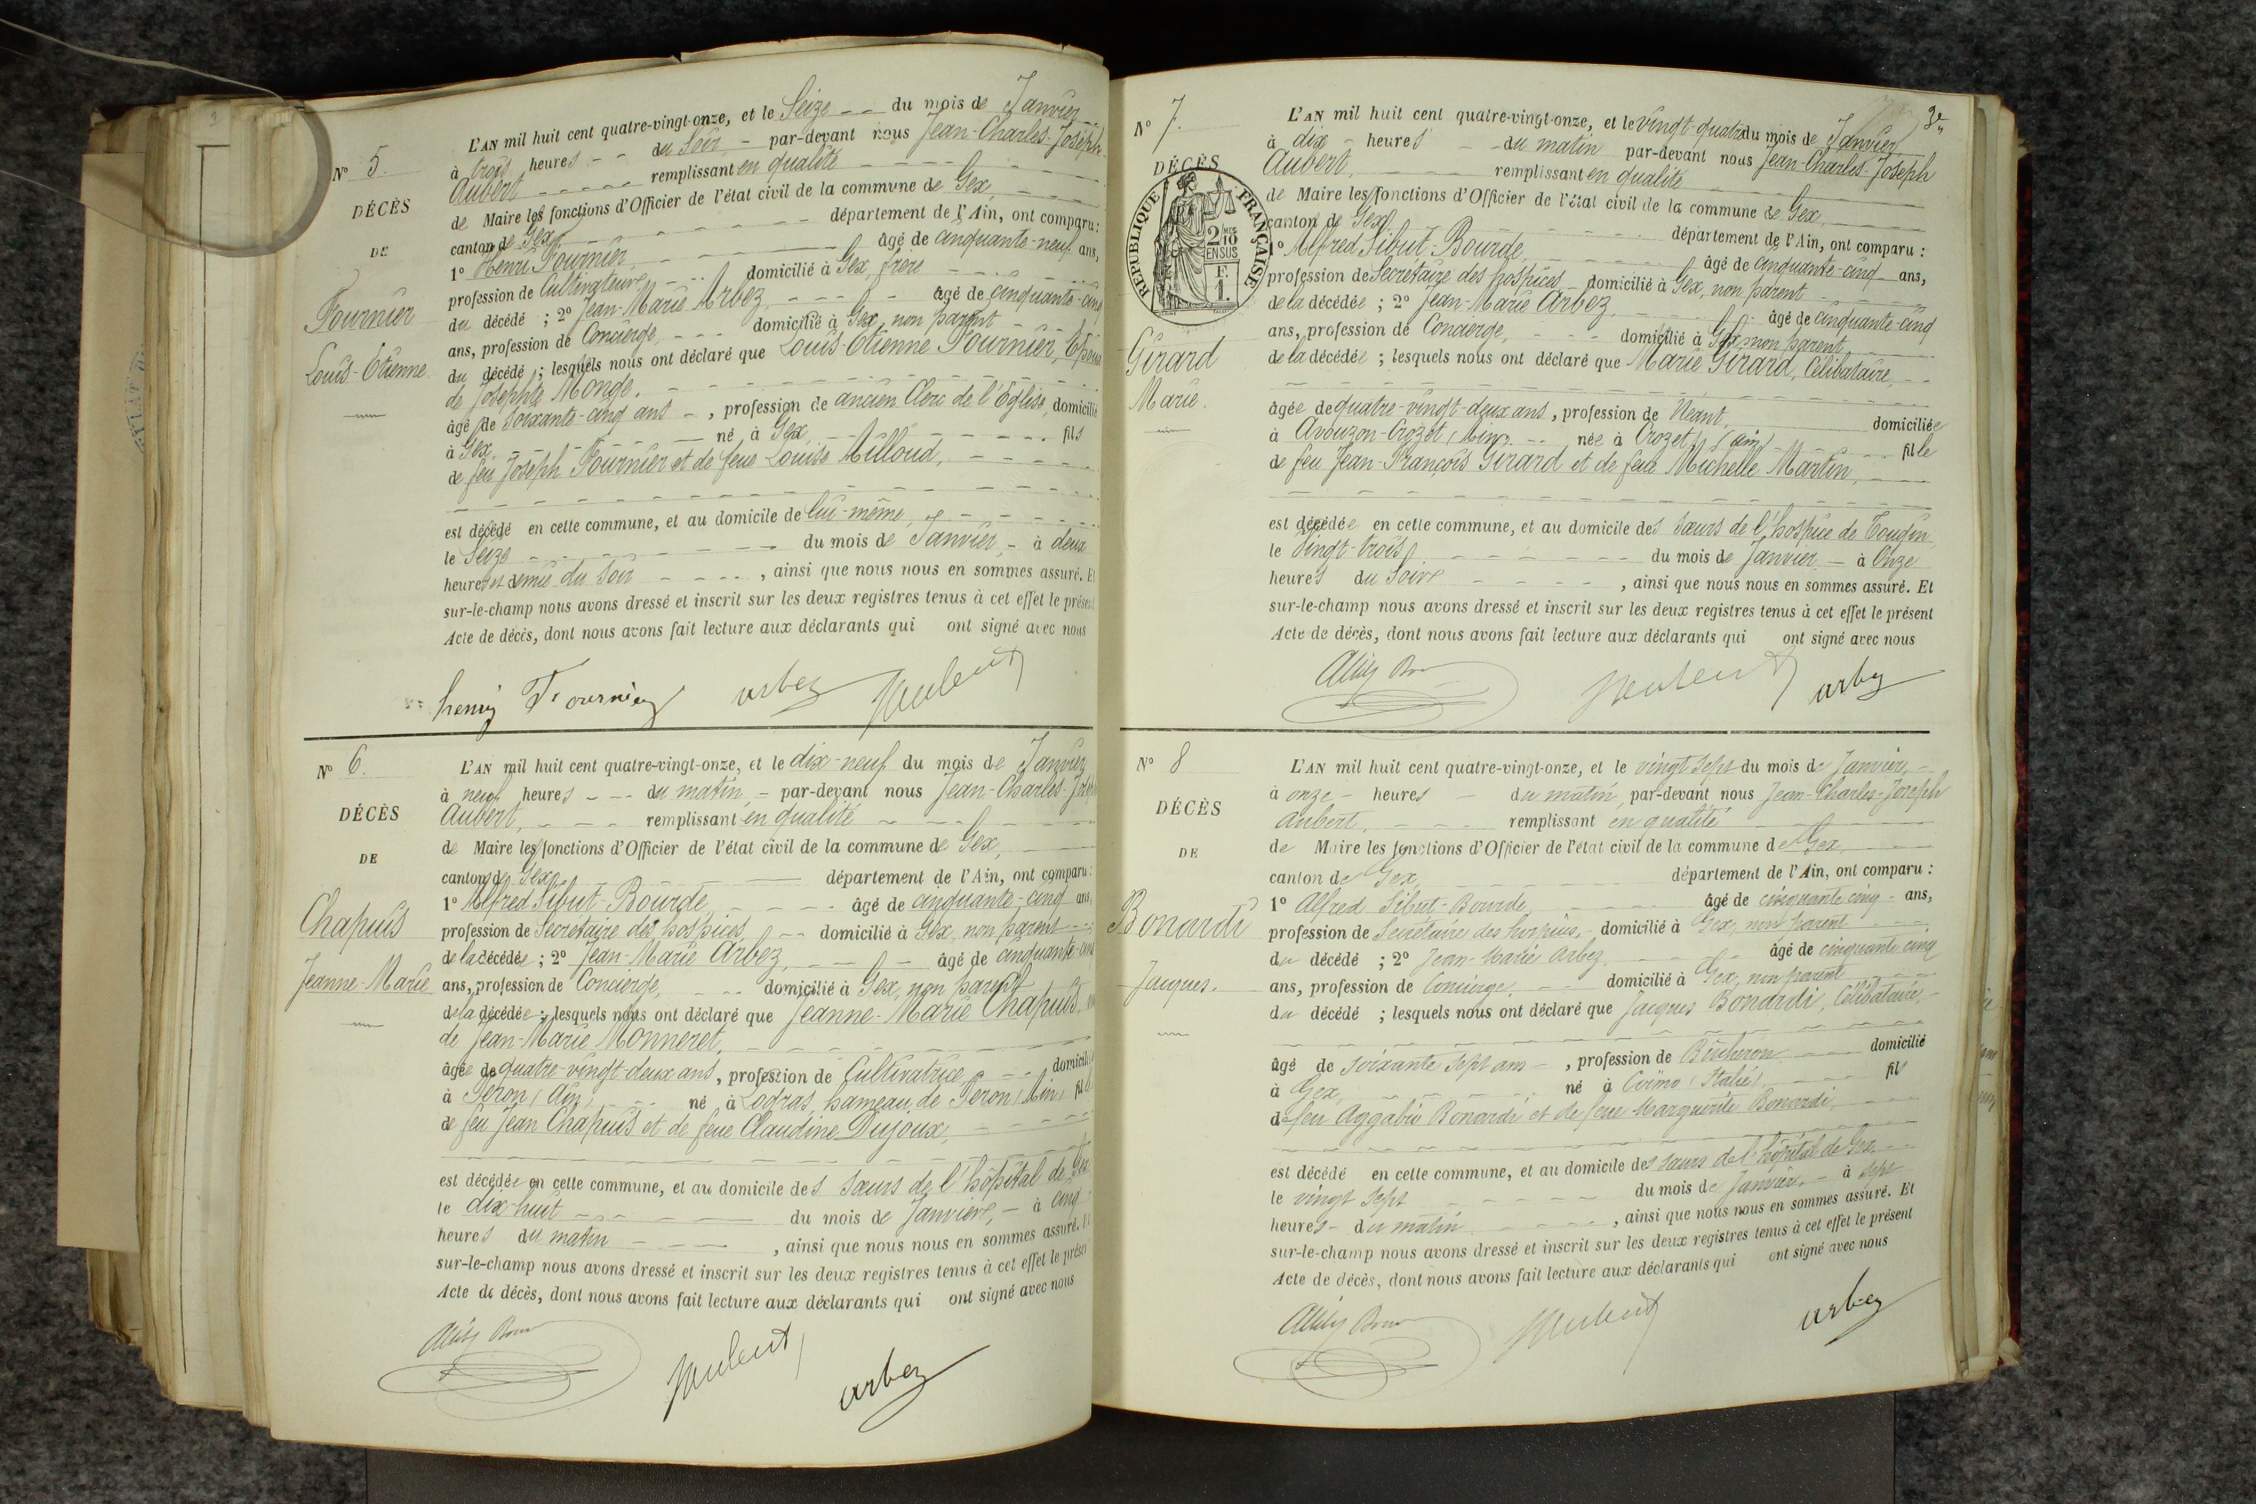 N° 5.
DÉCÈS
DE
Fournier
Louis-Etienne
L'AN mil huit cent quatre-vingt-onze, et le Seize du mois de Janvier
à trois heures du Soir par-devant nous Jean-Charles-Joseph
Aubert remplissant en qualité
de Maire les fonctions d'Officier de l'état civil de la commune de Gex,
canton de Gex département de l'Ain, ont comparu :
1° Henri Fournier âgé de cinquante-neuf ans,
profession de Cultivateur, domicilié à Gex, frère
du décédé ; 2° Jean-Marie Arbez âgé de cinquante-cinq
ans, profession de Concierge, domicilié à Gex, non parent
du décédé ; lesquels nous ont déclaré que Louis-Etienne Fournier,
de Josephte Monge.
âgé de soixante-cinq ans, profession de ancien Clerc de l'Eglise, domicilié
à Gex, né à Gex, fils
de feu Joseph Fournier et de feue Louise Milloud,
est décédé en cette commune, et au domicile de lui-même,
le Seize du mois de Janvier, à deux
heures et demie du soir, ainsi que nous nous en sommes assuré. Et
sur-le-champ nous avons dressé et inscrit sur les deux registres tenus à cet effet le présent
Acte de décès, dont nous avons fait lecture aux déclarants qui ont signé avec nous
henry Fournier arbez
N° 6.
DÉCÈS
DE
Chapuis
Jeanne-Marie
L'AN mil huit cent quatre-vingt-onze, et le dix-neuf du mois de Janvier
à neuf heures du matin, par-devant nous Jean-Charles-Joseph
Aubert, remplissant en qualité
de Maire les fonctions d'Officier de l'état civil de la commune de Gex,
canton de Gex département de l'Ain, ont comparu :
1° Alfred Sibut-Bourde, âgé de cinquante-cinq ans,
profession de Secrétaire des hospices domicilié à Gex, non parent
de la décédée ; 2° Jean-Marie Arbez, âgé de cinquante-cinq
ans, profession de Concierge, domicilié à Gex, non parent
de la décédée ; lesquels nous ont déclaré que Jeanne-Marie Chapuis,
de Jean-Marie Monneret,
âgée de quatre-vingt-deux ans, profession de Cultivatrice, domicilié
à Peron (Ain) né à Logras, hameau de Peron (Ain) fil
de feu Jean Chapuis et de feue Claudine Dujoux,
est décédée en cette commune, et au domicile des sœurs de l'hôpital de Gex
le dix-huit du mois de Janvier, à cinq
heures du matin, ainsi que nous nous en sommes assuré. Et
sur-le-champ nous avons dressé et inscrit sur les deux registres tenus à cet effet le présent
Acte de décès, dont nous avons fait lecture aux déclarants qui ont signé avec nous
arbez
3e
N° 7.
DÉCÈS
RÉPUBLIQUE FRANÇAISE
2/10 EN SUS
F. 1.
Girard
Marie.
L'AN mil huit cent quatre-vingt-onze, et le vingt-quatre du mois de Janvier
à dix heures du matin par-devant nous Jean-Charles-Joseph
Aubert, remplissant en qualité
de Maire les fonctions d'Officier de l'état civil de la commune de Gex,
canton de Gex département de l'Ain, ont comparu :
1° Alfred Sibut-Bourde, âgé de cinquante-cinq ans,
profession de Secrétaire des hospices domicilié à Gex, non parent
de la décédée ; 2° Jean-Marie Arbez, âgé de cinquante-cinq
ans, profession de Concierge, domicilié à Gex, non parent
de la décédée ; lesquels nous ont déclaré que Marie Girard, Célibataire,
âgée de quatre-vingt-deux ans, profession de Néant, domiciliée
à Avouzon-Crozet (Ain) née à Crozet (Ain) fille
de feu Jean-François Girard et de feue Michelle Martin,
est décédée en cette commune, et au domicile des sœurs de l'hospice de Tougin,
le Vingt-trois du mois de Janvier à Onze
heures du Soir, ainsi que nous nous en sommes assuré. Et
sur-le-champ nous avons dressé et inscrit sur les deux registres tenus à cet effet le présent
Acte de décès, dont nous avons fait lecture aux déclarants qui ont signé avec nous
arbez
N° 8
DÉCÈS
DE
Bonardi
Jacques.
L'AN mil huit cent quatre-vingt-onze, et le vingt sept du mois de Janvier,
à onze heures du matin, par-devant nous Jean-Charles-Joseph
Aubert, remplissant en qualité
de Maire les fonctions d'Officier de l'état civil de la commune de Gex,
canton de Gex, département de l'Ain, ont comparu :
1° Alfred Sibut-Bourde, âgé de cinquante cinq ans,
profession de Secrétaire des hospices, domicilié à Gex, non parent
du décédé ; 2° Jean-Marie Arbez, âgé de cinquante cinq
ans, profession de Concierge, domicilié à Gex, non parent
du décédé ; lesquels nous ont déclaré que Jacques Bonardi, Célibataire,
âgé de soixante sept ans, profession de Bûcheron domicilié
à Gex, né à (Italie) fils
de feu Bonardi et de feue Marguerite Bonardi,
est décédé en cette commune, et au domicile des sœurs de l'hôpital de Gex,
le vingt sept du mois de Janvier, à sept
heures du matin, ainsi que nous nous en sommes assuré. Et
sur-le-champ nous avons dressé et inscrit sur les deux registres tenus à cet effet le présent
Acte de décès, dont nous avons fait lecture aux déclarants qui ont signé avec nous
arbez